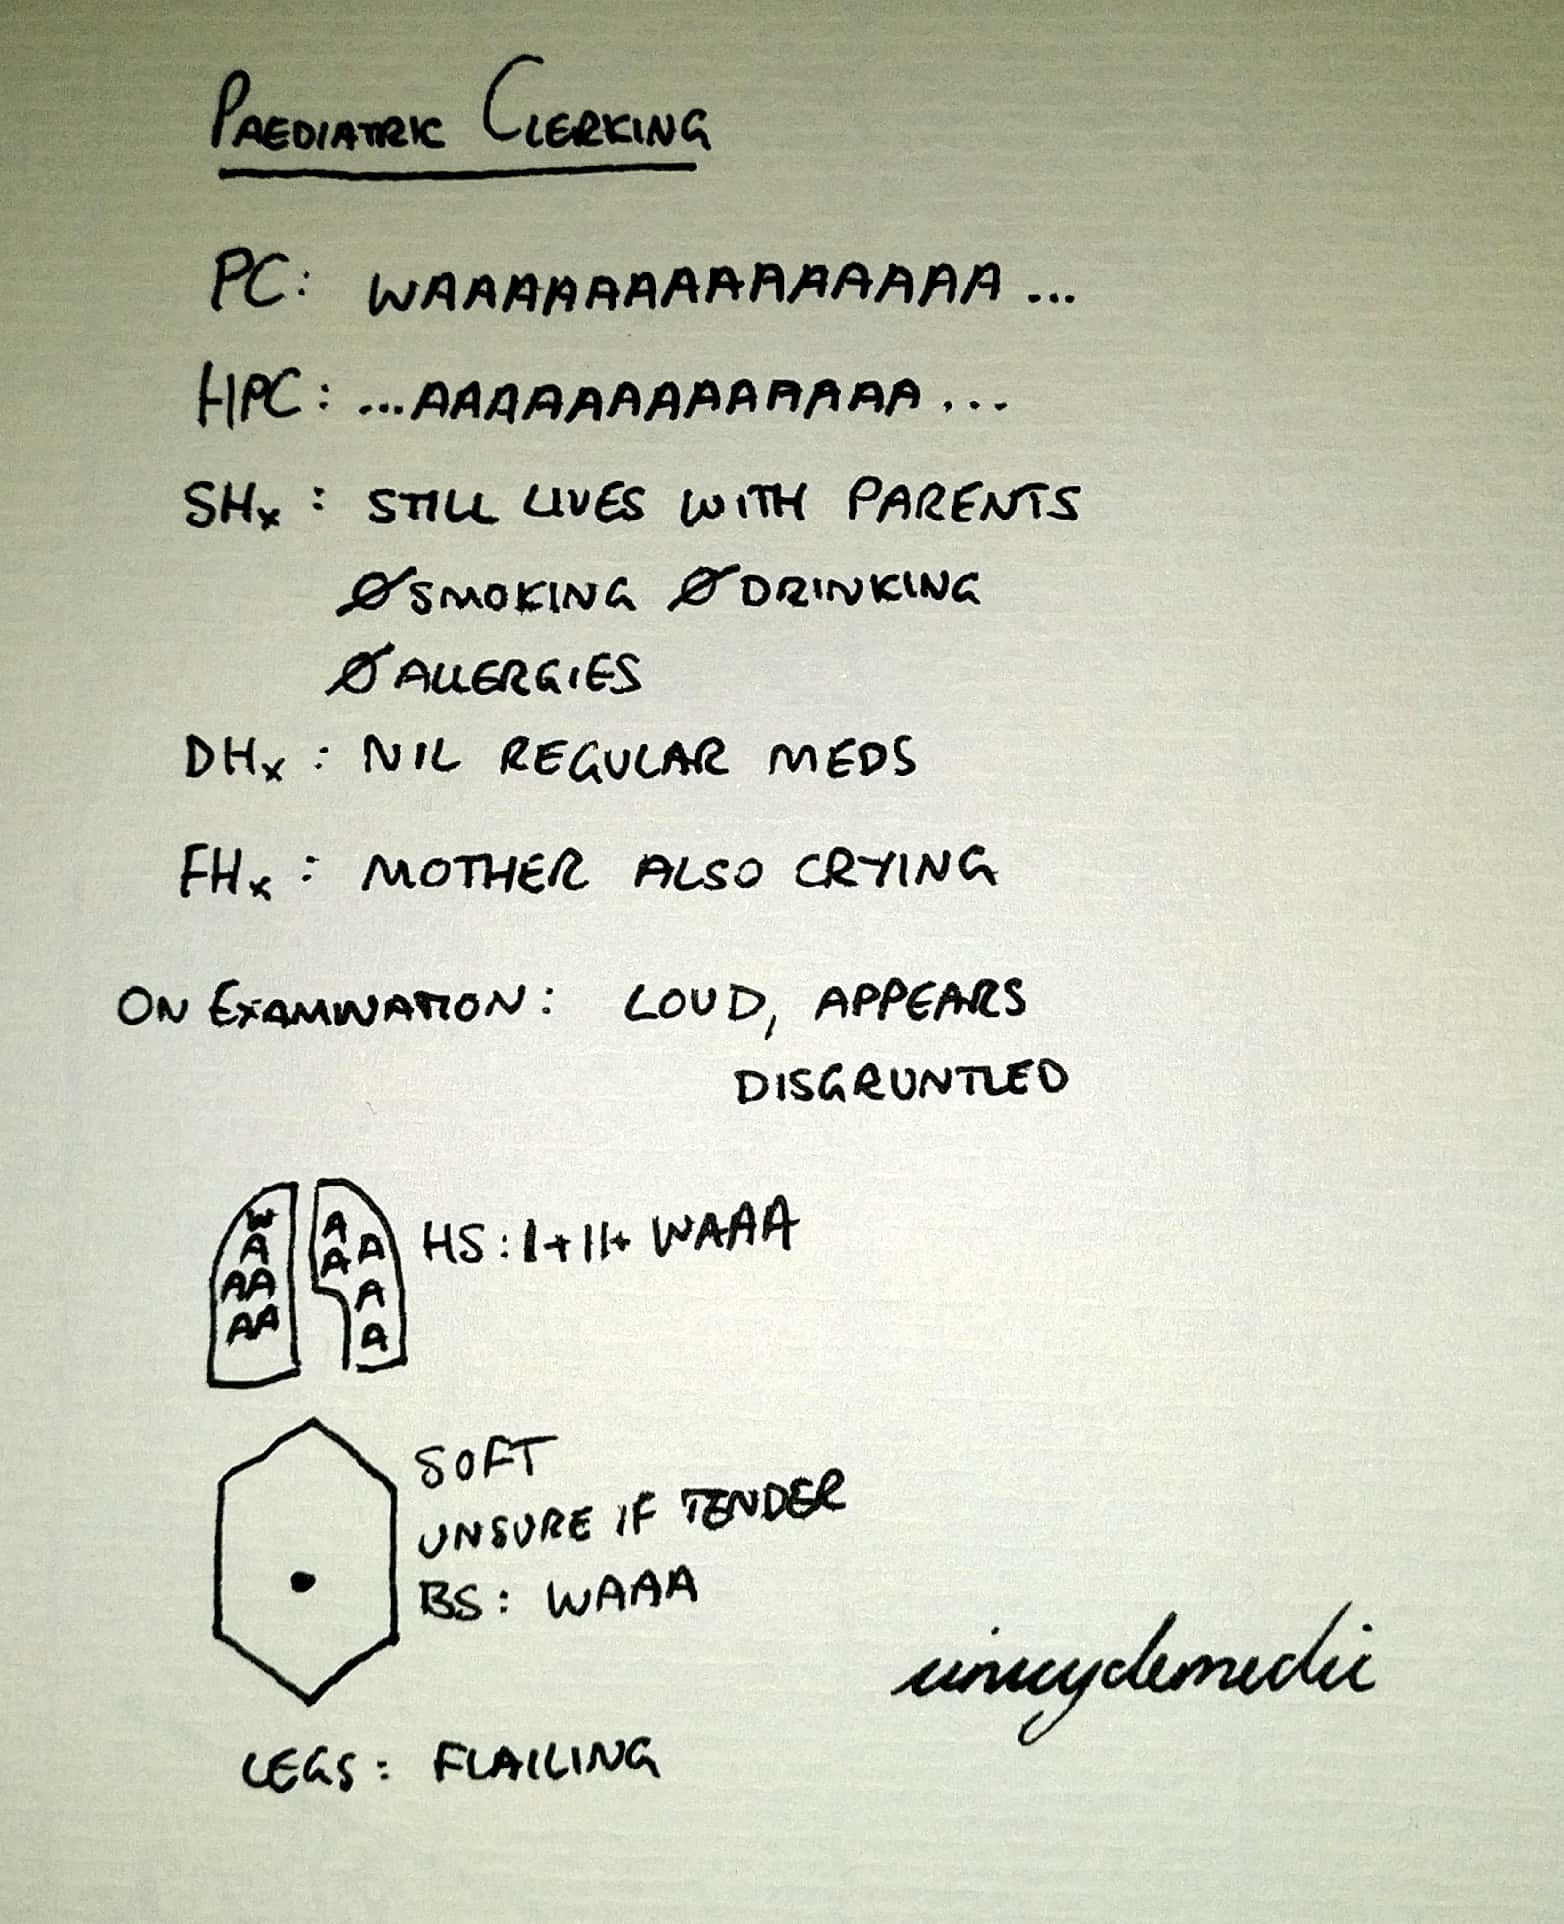 PAEDIATRIC CLERKING
PC: WAAAAAAAAAAAAAAA...
HPC: ...AAAAAAAAAAAAA...
SHx: STILL LIVES WITH PARENTS
ØSMOKING ØDRINKING
ØALLERGIES
DHx: NIL REGULAR MEDS
FHx: MOTHER ALSO CRYING
ON EXAMINATION: LOUD, APPEARS
DISGRUNTLED
W
A
AA
AA
A
A A
A
A
HS: I+II+ WAAA
SOFT
UNSURE IF TENDER
BS: WAAA
LEGS: FLAILING
unicyclemedic